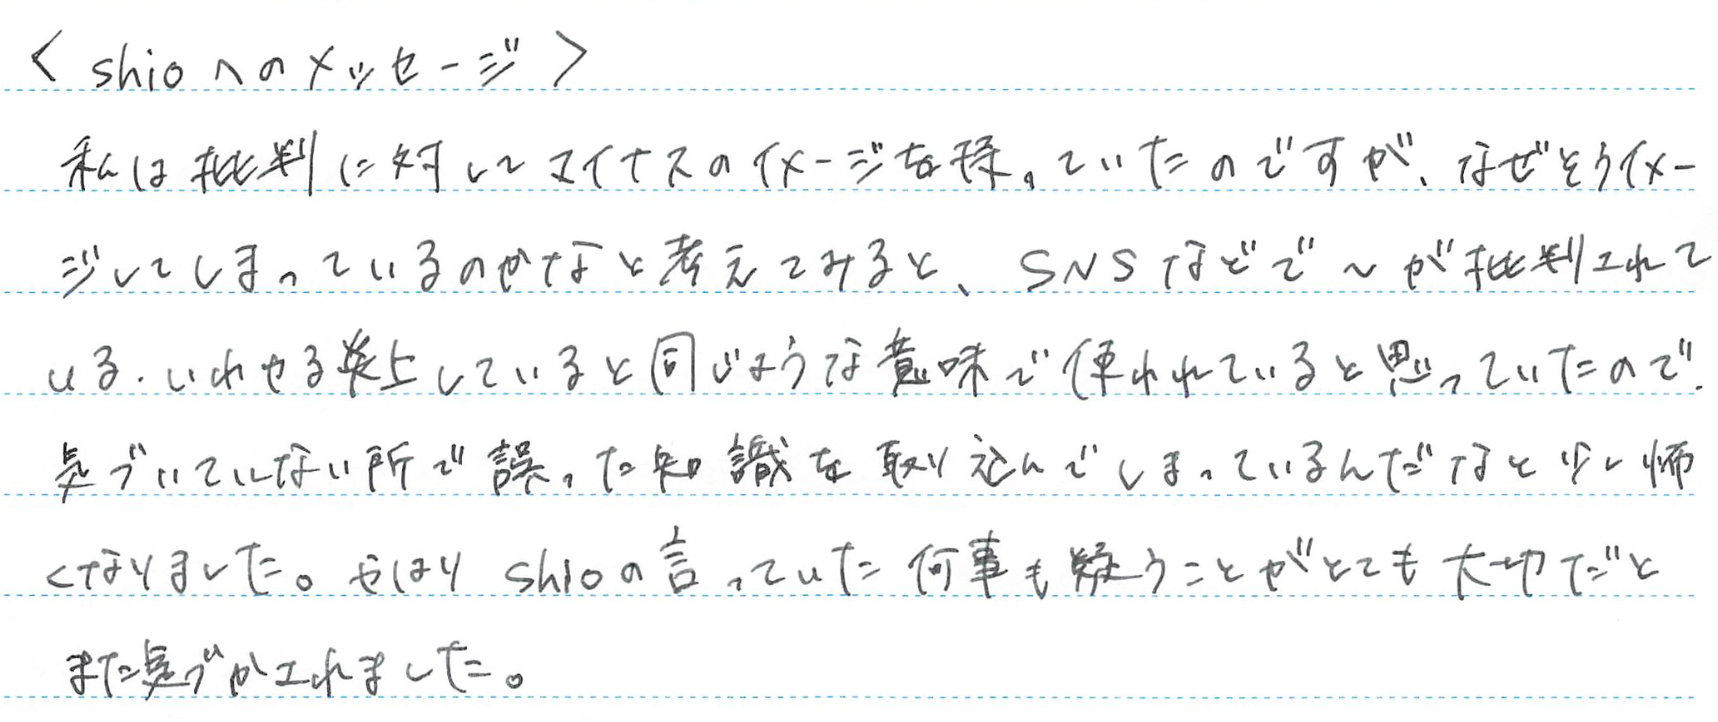 < shioへのメッセージ >
私は批判に対してマイナスのイメージを持っていたのですが、なぜそうイメー
ジしてしまっているのかなと考えてみると、SNSなどで〜が批判されて
いる.いわゆる炎上していると同じような意味で使われていると思っていたので.
気づいていない所で誤った知識を取り込んでしまっているんだなと少し怖
くなりました。やはりshioの言っていた何事も疑うことがとても大切だと
また気づかされました。